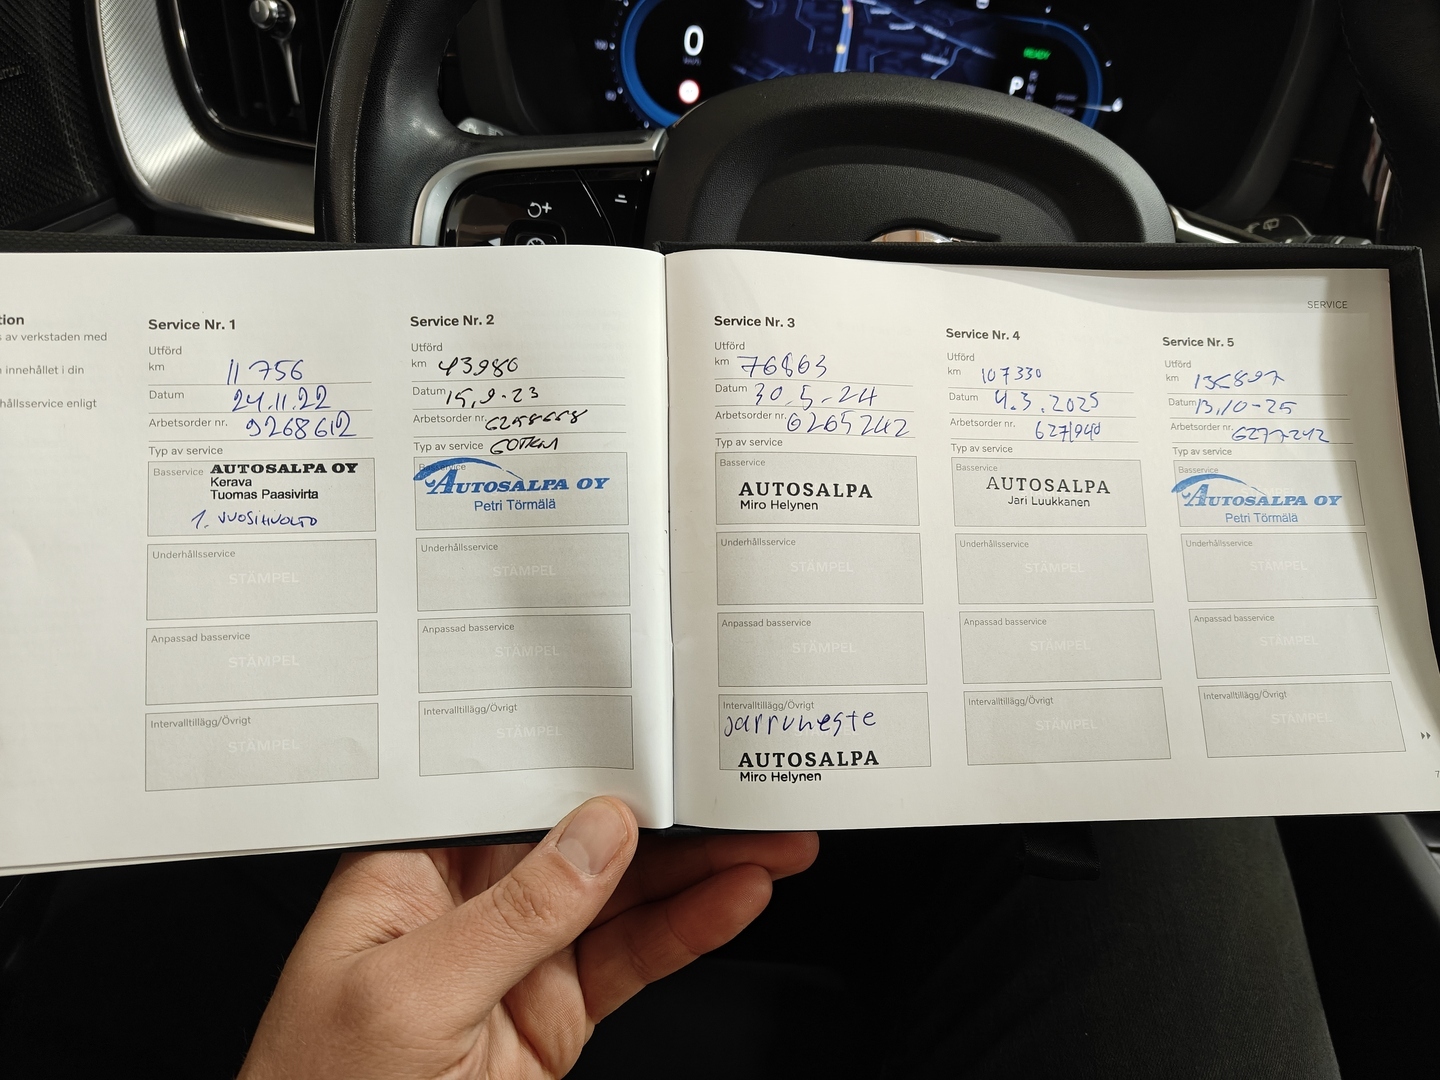 0
READY
P
tion
s av verkstaden med
innehållet i din
hållsservice enligt
Service Nr. 1
Utförd
km 11 756
Datum 24.11.22
Arbetsorder nr. 9268612
Typ av service
Basservice
AUTOSALPA OY
Kerava
Tuomas Paasivirta
1. VUOSIHUOLTO
Underhållsservice
STÄMPEL
Anpassad basservice
STÄMPEL
Intervalltillägg/Övrigt
STÄMPEL
Service Nr. 2
Utförd
km 43980
Datum 15.9-23
Arbetsorder nr.
Typ av service 60TKM
Basservice
AUTOSALPA OY
Petri Törmälä
Underhållsservice
STÄMPEL
Anpassad basservice
STÄMPEL
Intervalltillägg/Övrigt
STÄMPEL
SERVICE
Service Nr. 3
Utförd
km 76863
Datum 30.5-24
Arbetsorder nr. 6265242
Typ av service
Basservice
AUTOSALPA
Miro Helynen
Underhållsservice
STÄMPEL
Anpassad basservice
STÄMPEL
Intervalltillägg/Övrigt
jarruneste
AUTOSALPA
Miro Helynen
Service Nr. 4
Utförd
km 107330
Datum 4.3.2025
Arbetsorder nr.
Typ av service
Basservice
AUTOSALPA
Jari Luukkanen
Underhållsservice
STÄMPEL
Anpassad basservice
STÄMPEL
Intervalltillägg/Övrigt
STÄMPEL
Service Nr. 5
Utförd
km
Datum 13.10-25
Arbetsorder nr. 6277242
Typ av service
Basservice
AUTOSALPA OY
Petri Törmälä
Underhållsservice
STÄMPEL
Anpassad basservice
STÄMPEL
Intervalltillägg/Övrigt
STÄMPEL
7